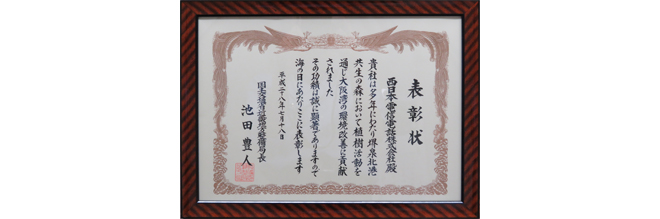 表彰状
西日本電信電話株式会社殿
貴社は多年にわたり堺泉北港
共生の森において植樹活動を
通じ大阪湾の環境改善に貢献
されました
その功績は誠に顕著でありますので
海の日にあたりここに表彰します
平成二十八年七月十八日
国土交通省近畿地方整備局長
池田豊人